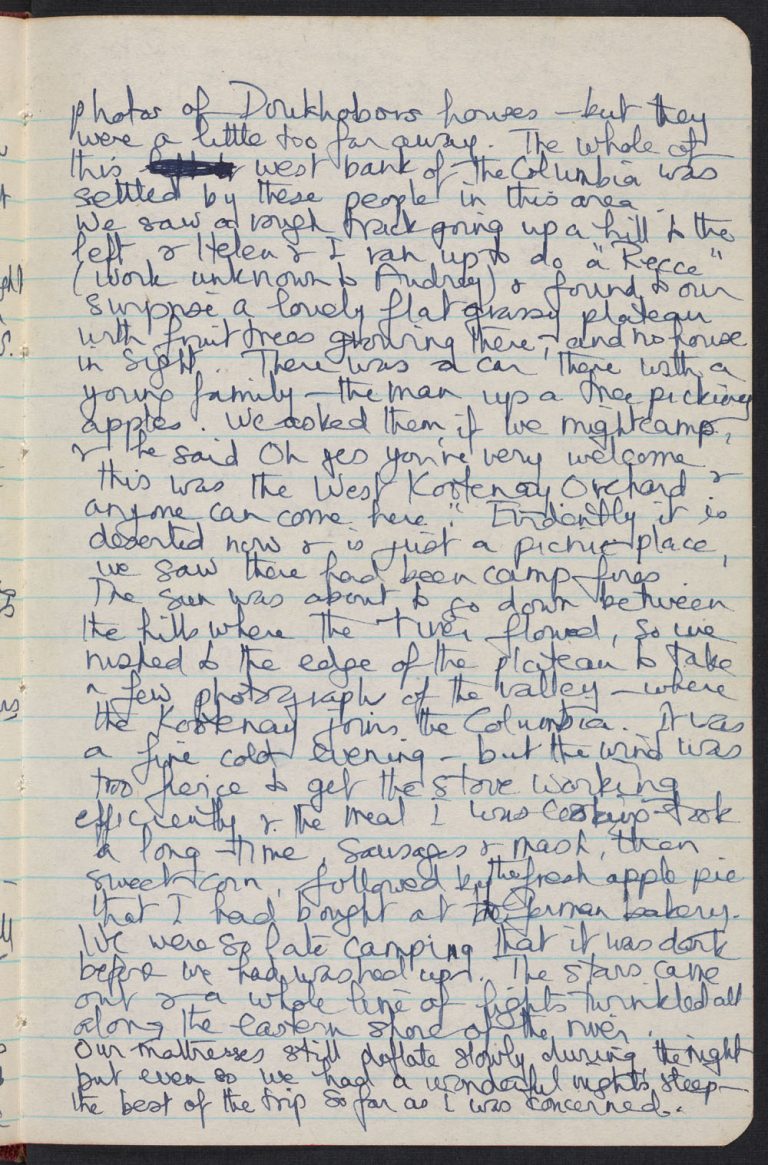 photos of Doukhobors houses - but they
were a little too far away. The whole of
this west bank of the Columbia was
settled by these people in this area.
We saw a rough track going up a hill to the
left & Helen & I ran up to do a "Recce"
(work unknown to Audrey) & found to our
surprise a lovely flat grassy plateau
with fruit trees growing there, and no house
in sight. There was a car there with a
young family - the man up a tree picking
apples. We asked them if we might camp,
& he said Oh yes you're very welcome
this was the West Kootenay Orchard &
anyone can come here." Evidently it is
deserted now & is just a picnic place,
we saw there had been camp-fires.
The sun was about to go down between
the hills where the river flowed, so we
rushed to the edge of the plateau to take
a few photographs of the valley - where
the Kootenay joins the Columbia. It was
a fine cold evening - but the wind was
too fierce to get the stove working
efficiently & the meal I was cooking took
a long time. Sausages & mash, then
sweet corn, followed by the fresh apple pie
that I had bought at the German bakery.
We were so late camping that it was dark
before we had washed up. The stars came
out & a whole line of lights twinkled all
along the eastern shore of the river.
Our mattresses still deflate slowly during the night
but even so we had a wonderful nights sleep -
the best of the trip so far as I was concerned.